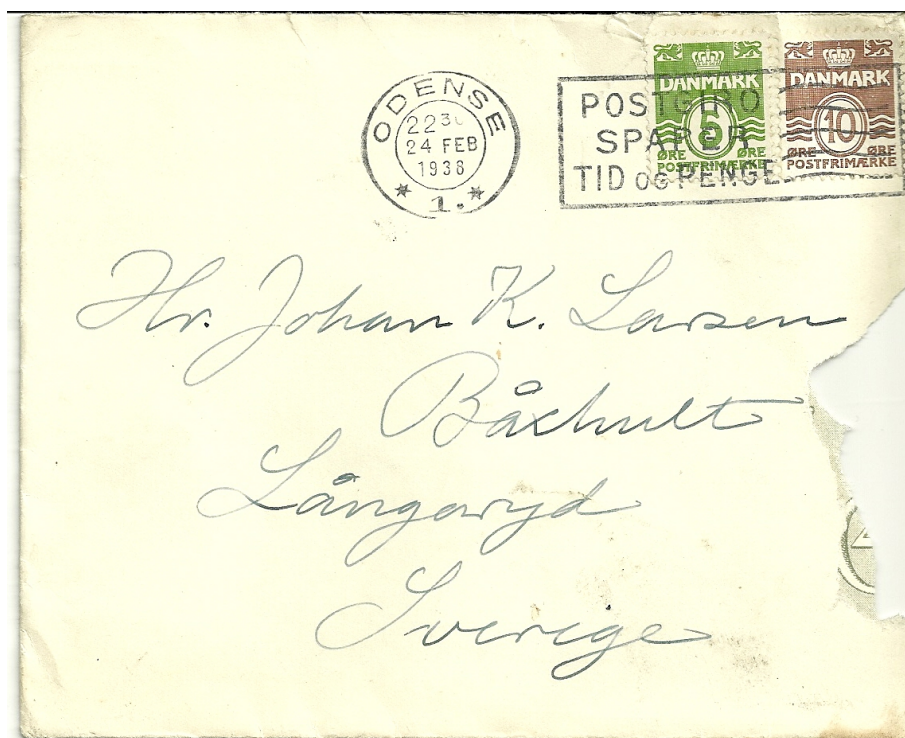 ODENSE
22 30
24 FEB
1938
1.
POSTGIRO
SPARER
TID OG PENGE
DANMARK
5
ØRE ØRE
POSTFRIMÆRKE
DANMARK
10
ØRE ØRE
POSTFRIMÆRKE
Hr. Johan K. Larsen
Båxhult
Långaryd
Sverige